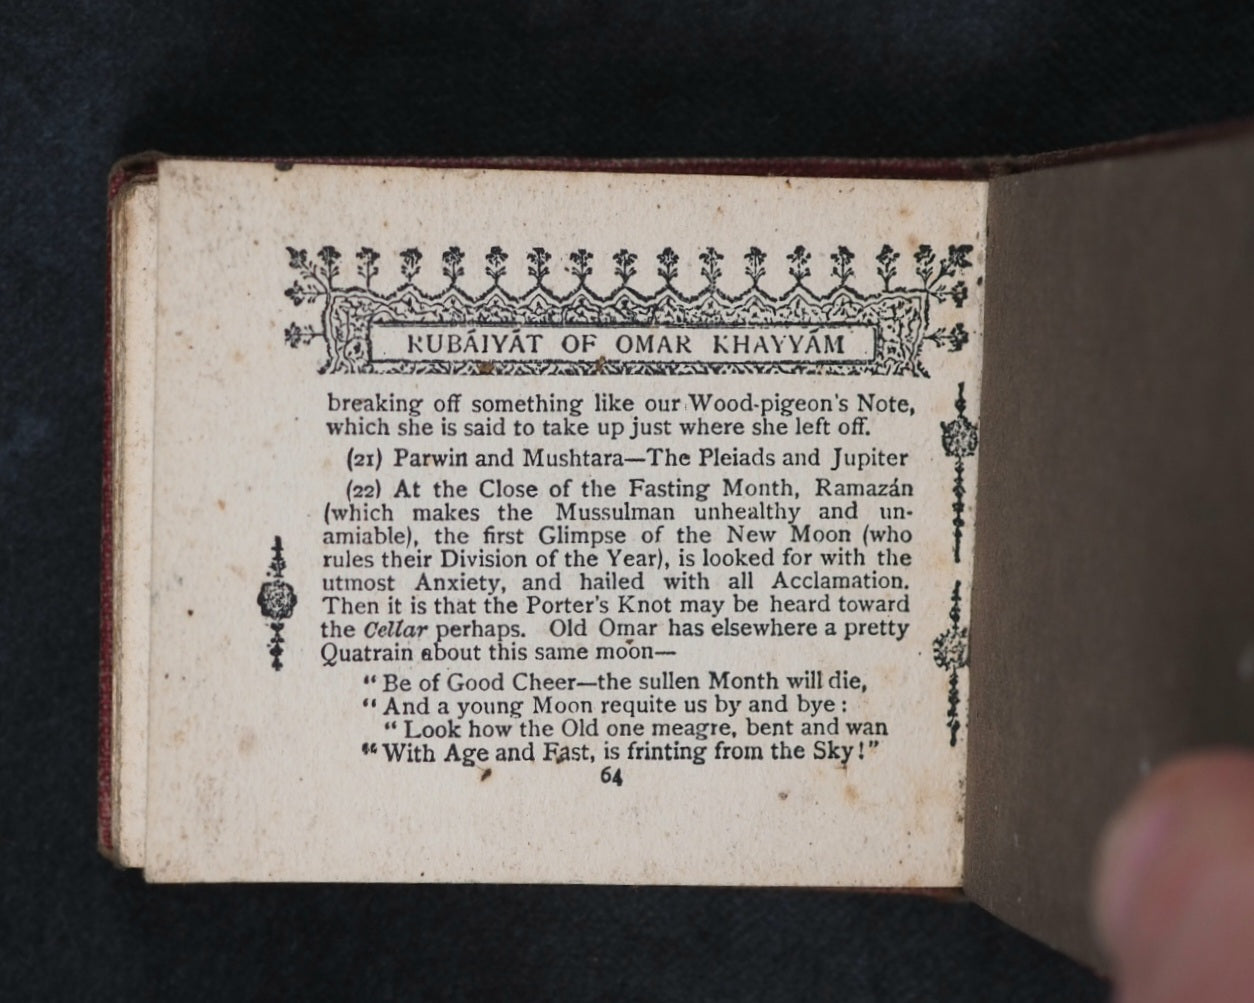 RUBÁIYÁT OF OMAR KHAYYÁM
breaking off something like our Wood-pigeon's Note,
which she is said to take up just where she left off.
(21) Parwin and Mushtara—The Pleiads and Jupiter
(22) At the Close of the Fasting Month, Ramazán
(which makes the Mussulman unhealthy and un-
amiable), the first Glimpse of the New Moon (who
rules their Division of the Year), is looked for with the
utmost Anxiety, and hailed with all Acclamation.
Then it is that the Porter's Knot may be heard toward
the Cellar perhaps. Old Omar has elsewhere a pretty
Quatrain about this same moon—
"Be of Good Cheer—the sullen Month will die,
"And a young Moon requite us by and bye:
"Look how the Old one meagre, bent and wan
"With Age and Fast, is frinting from the Sky!"
64